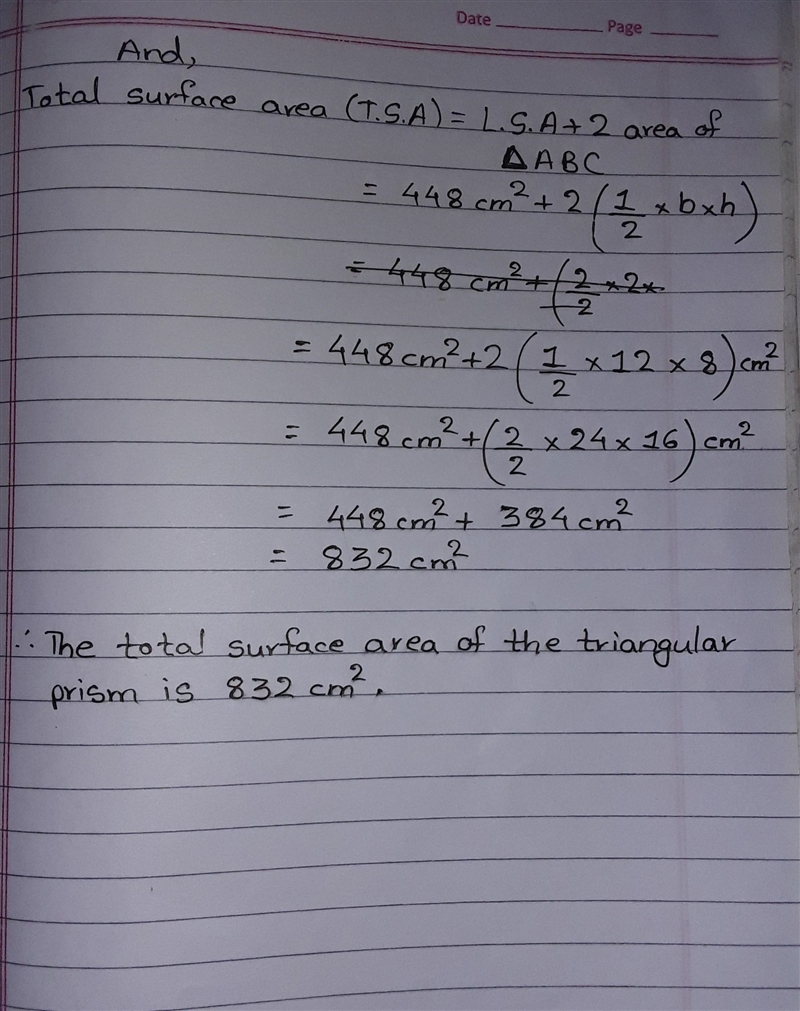 Date ________ Page ______
And,
Total surface area (T.S.A) = L.S.A + 2 area of
△ABC
= 448 cm² + 2 (1/2 × b × h)
= 448 cm² + (2/2 × 2×
= 448 cm² + 2 (1/2 × 12 × 8) cm²
= 448 cm² + (2/2 × 24 × 16) cm²
= 448 cm² + 384 cm²
= 832 cm²
∴ The total surface area of the triangular
prism is 832 cm².